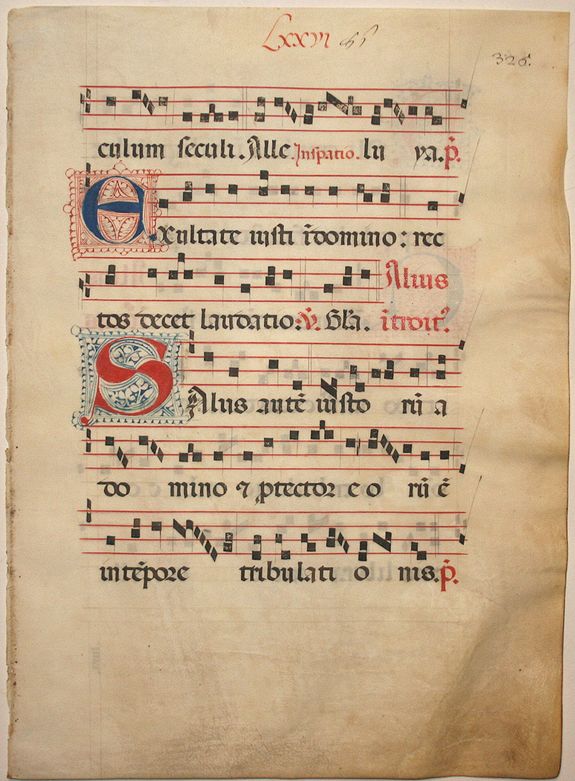 Lxxvi 66
326.
culum seculi. Alle. Inspatio. lu ya. p̃.
Exultate iusti ĩ domino: rec
tos decet laudatio: ℣. Gl'a. Alius ĩtroit9.
Salus autẽ iusto rũ a
do mino ⁊ ꝓtector e o rũ ẽ
in tẽpore tribulati o nis. p̃.